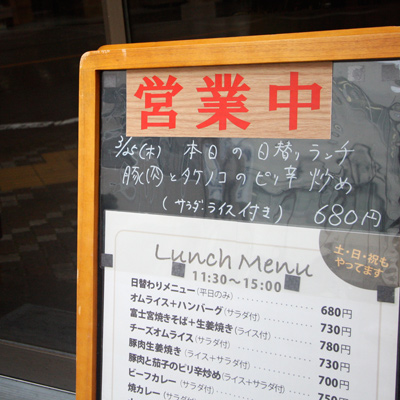 営業中
3/25(木) 本日の日替りランチ
豚肉とタケノコのピリ辛炒め
(サラダ・ライス付き) 680円
Lunch Menu
11:30〜15:00
土・日・祝も
やってます
日替わりメニュー(平日のみ) 680円
オムライス+ハンバーグ(サラダ付) 730円
富士宮焼きそば+生姜焼き(ライス付) 780円
チーズオムライス(サラダ付) 730円
豚肉生姜焼き(ライス+サラダ付) 700円
豚肉と茄子のピリ辛炒め(ライス+サラダ付)
ビーフカレー(サラダ付) 750円
焼カレー(サラダ付)